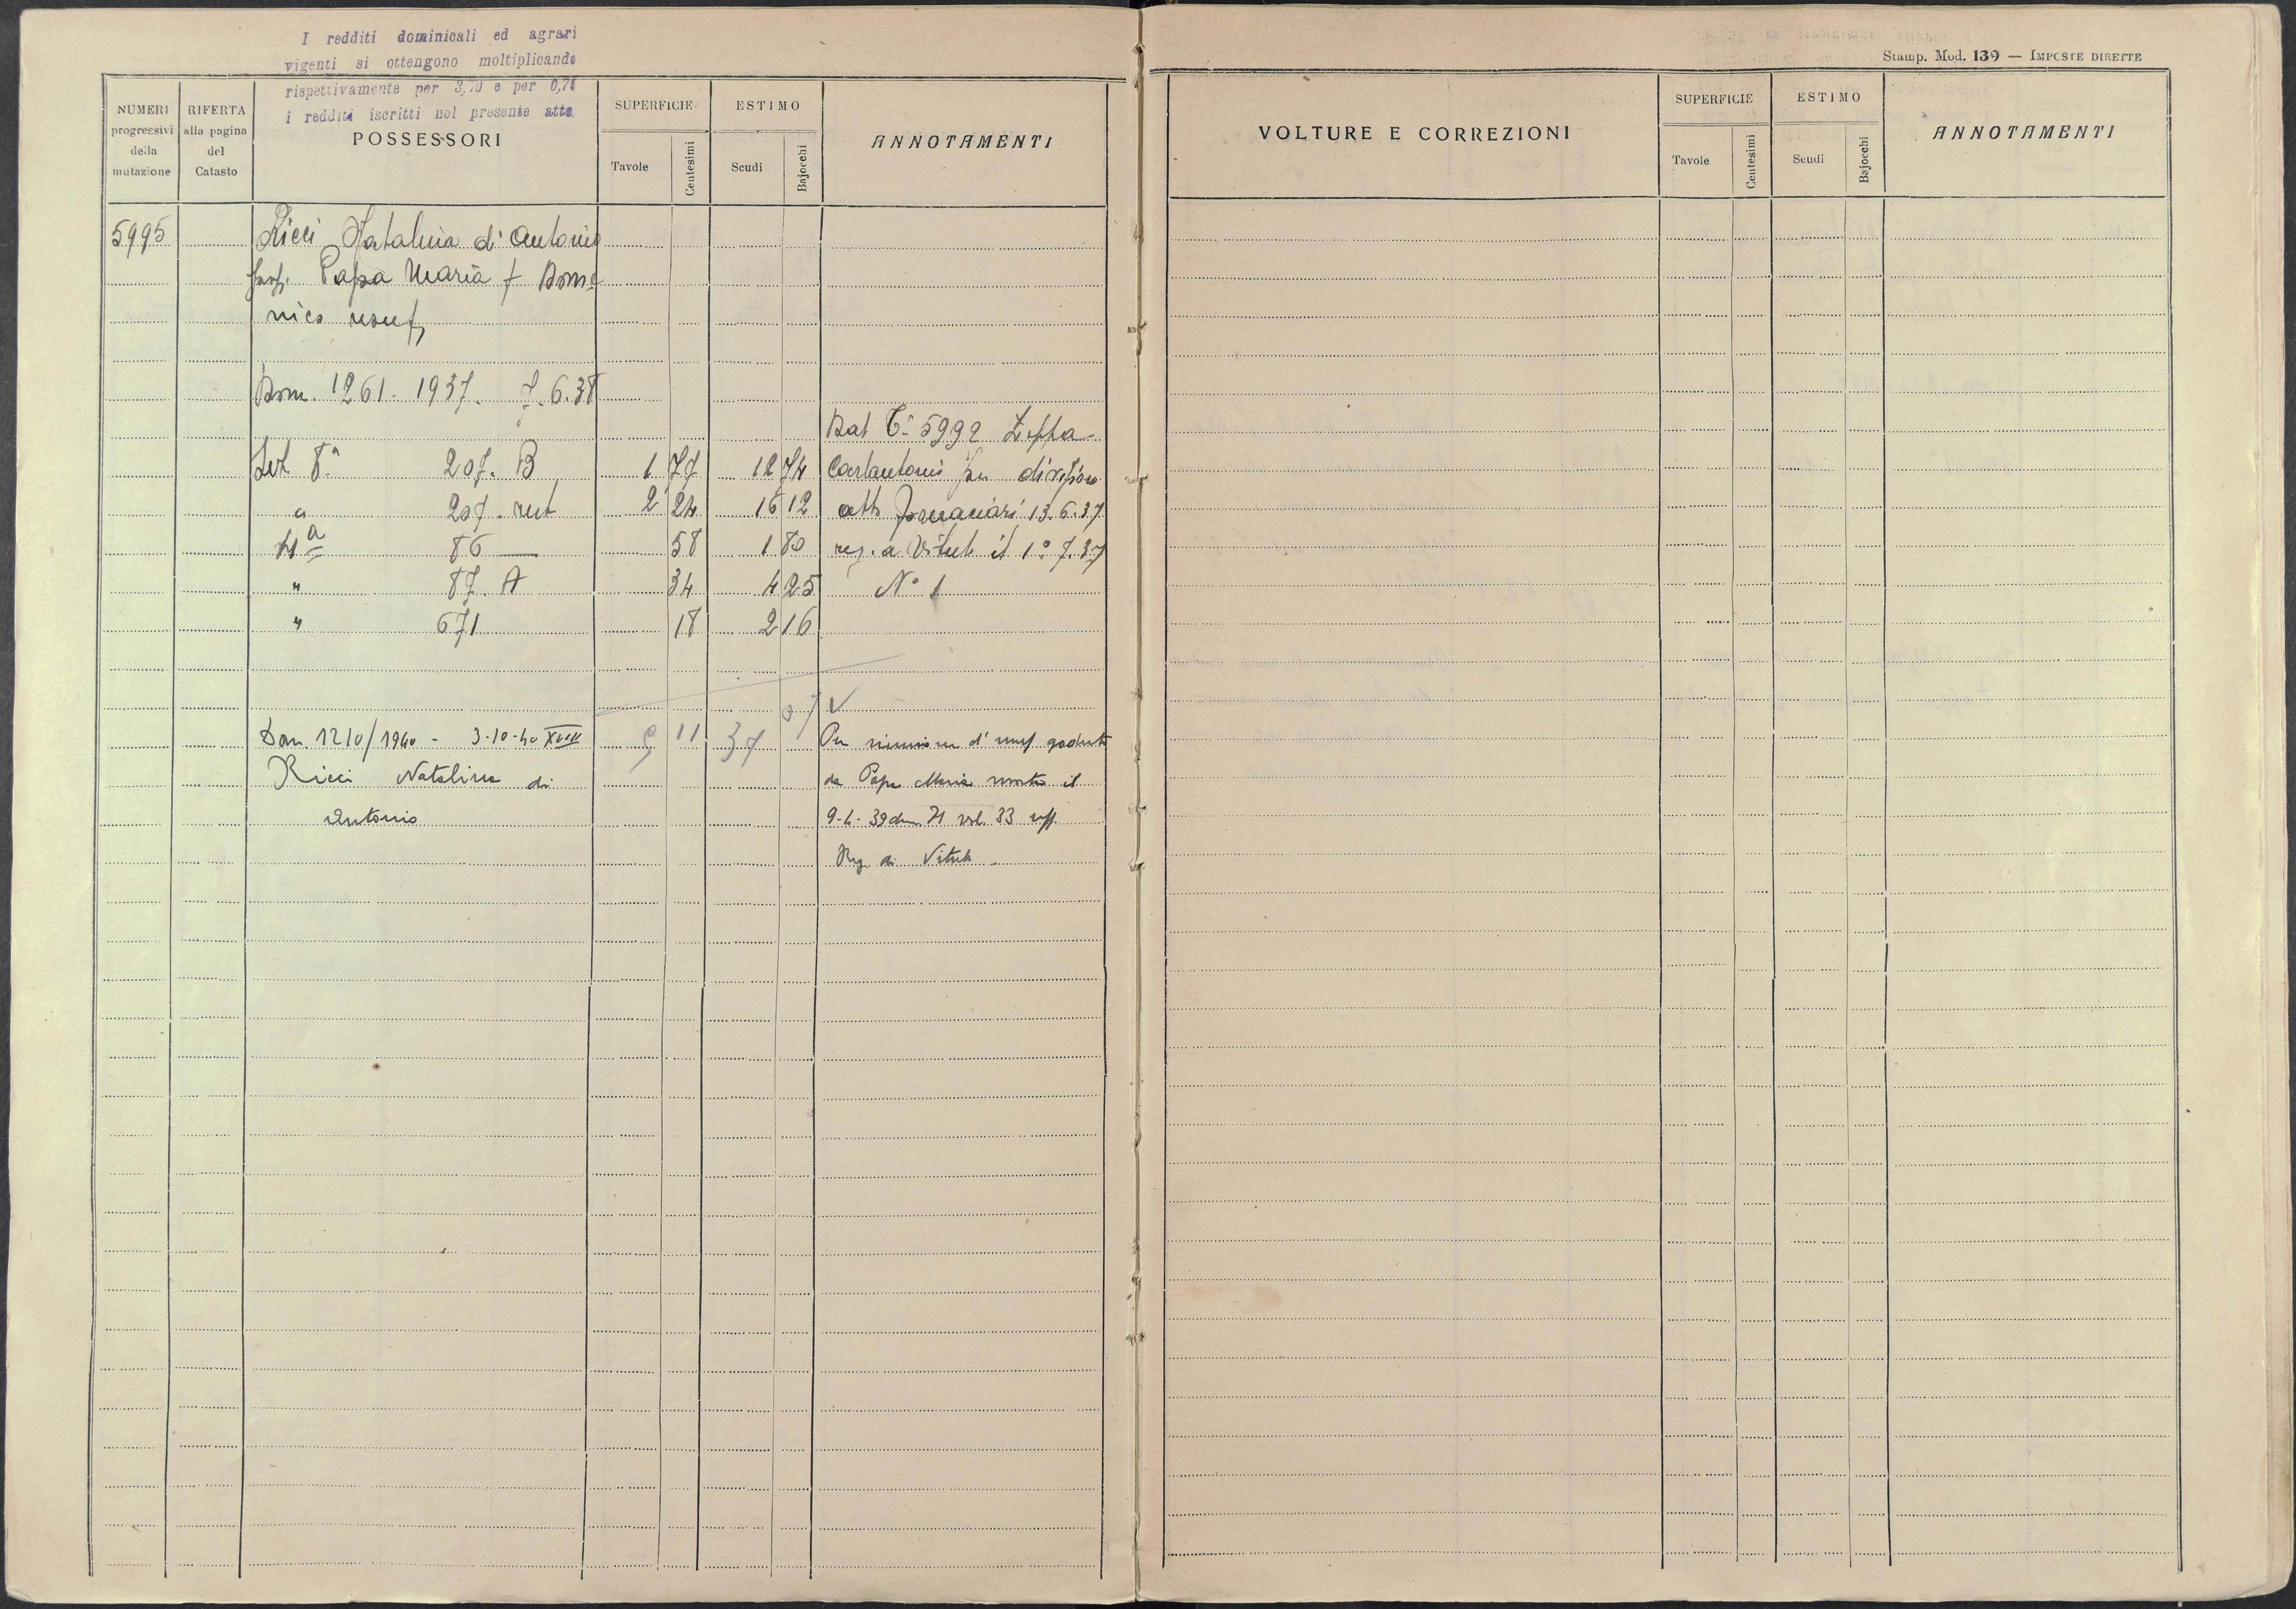 I redditi dominicali ed agrari
vigenti si ottengono moltiplicando
rispettivamente per 3,70 e per 0,74
i redditi iscritti nel presente atto
Stamp. Mod. 139 — IMPOSTE DIRETTE
NUMERI progressivi della mutazione
RIFERTA alla pagina del Catasto
POSSESSORI
SUPERFICIE
Tavole
Centesimi
ESTIMO
Scudi
Bajocchi
ANNOTAMENTI
5995 Ricci Natalina d'Antonio
Papa Maria f Dome
nico usuf,
Dom. 1261. 1937. 7.6.38
Dal C. 5992 Zeppa
Set 8ª 207. B 1 77 12 74 Carlantonio per divisione
" 207. rest 2 24 16 12 atto 13.6.37
4ª 86 — 58 1 80 reg. a Vitub il 1º.7.37
" 87. A 34 4 25 Nº 1
" 671 18 2 16
07 V
Dom. 1210/1940 - 3-10-40 XVIII 5 11 37 Per riunione d'usuf goduto
Ricci Natalina di da Papa Maria morta il
Antonio 9-4-39 den. 71 vol. 33 uff.
Reg di Vitub
VOLTURE E CORREZIONI
SUPERFICIE
Tavole
Centesimi
ESTIMO
Scudi
Bajocchi
ANNOTAMENTI